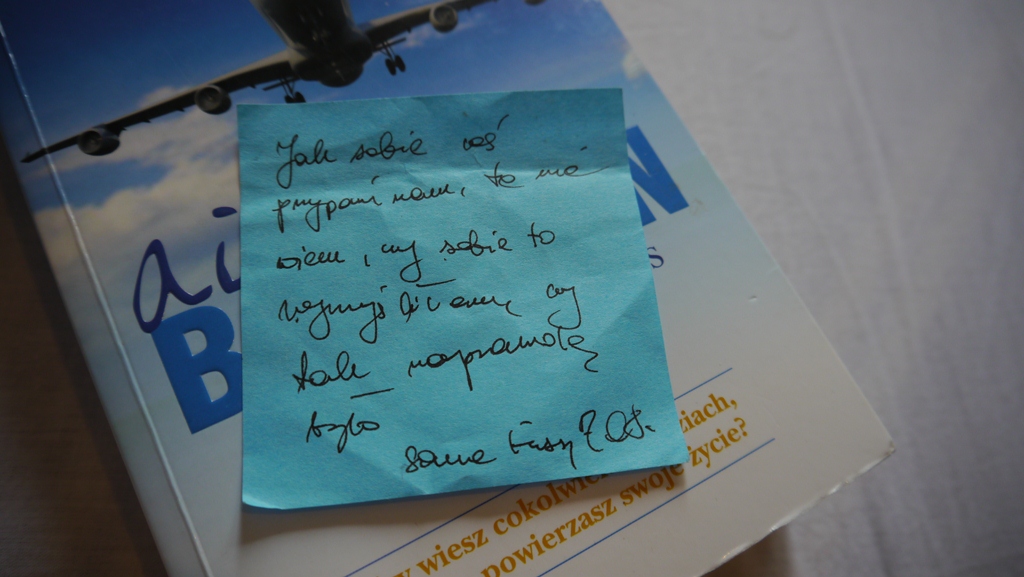 Jak sobie coś
przypominam, to nie
wiem, czy sobie to
czy
tak naprawdę
było
sama
ai
B
N
S
wiesz cokolwie
ziach,
powierzasz swoje życie?